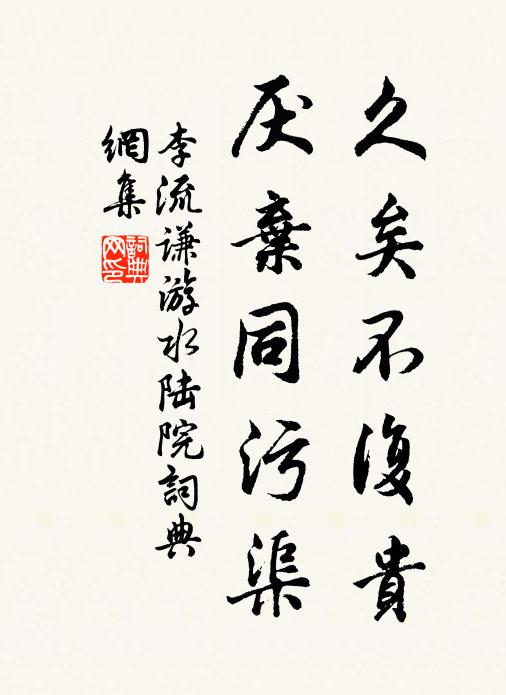 久矣不復貴
厌棄同污渠
李流谦游水陆院詞典
網集
詞典网印